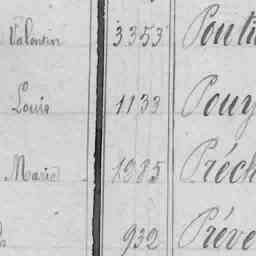 Valentin 3353 Pouti
Louis 1133 Pouy
Marie 1985 Préch
932 Préve